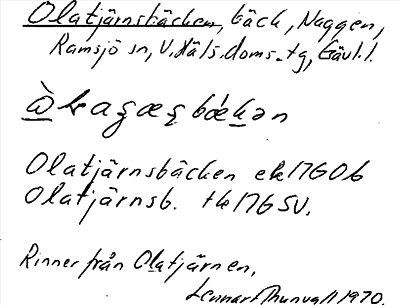 Olatjärnsbäcken, bäck, Naggen,
Ramsjö sn, V. Häls. doms.tg, Gävl.l.
Olatjärnsbäcken ek17G0b
Olatjärnsb. tk17G SV.
Rinner från Olatjärnen.
Lennart Thunvall 1970.